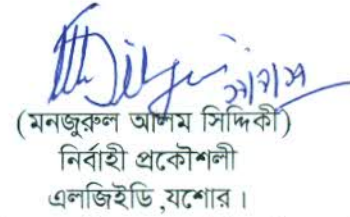 (মনজুরুল আলম সিদ্দিকী)
নির্বাহী প্রকৌশলী
এলজিইডি ,যশোর ।